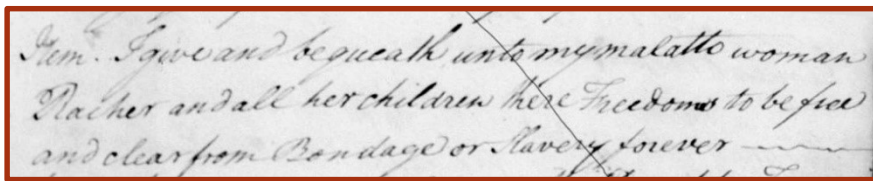 Item. I give and bequeath unto my malatto woman
Racher and all her children there Freedoms to be free
and clear from Bondage or Slavery forever